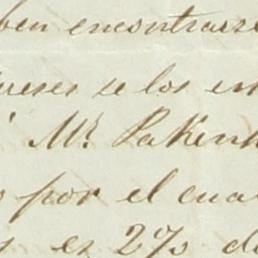 ben encontrarse
se los
á Mr. Pakenh
por el cua
s es 2% d